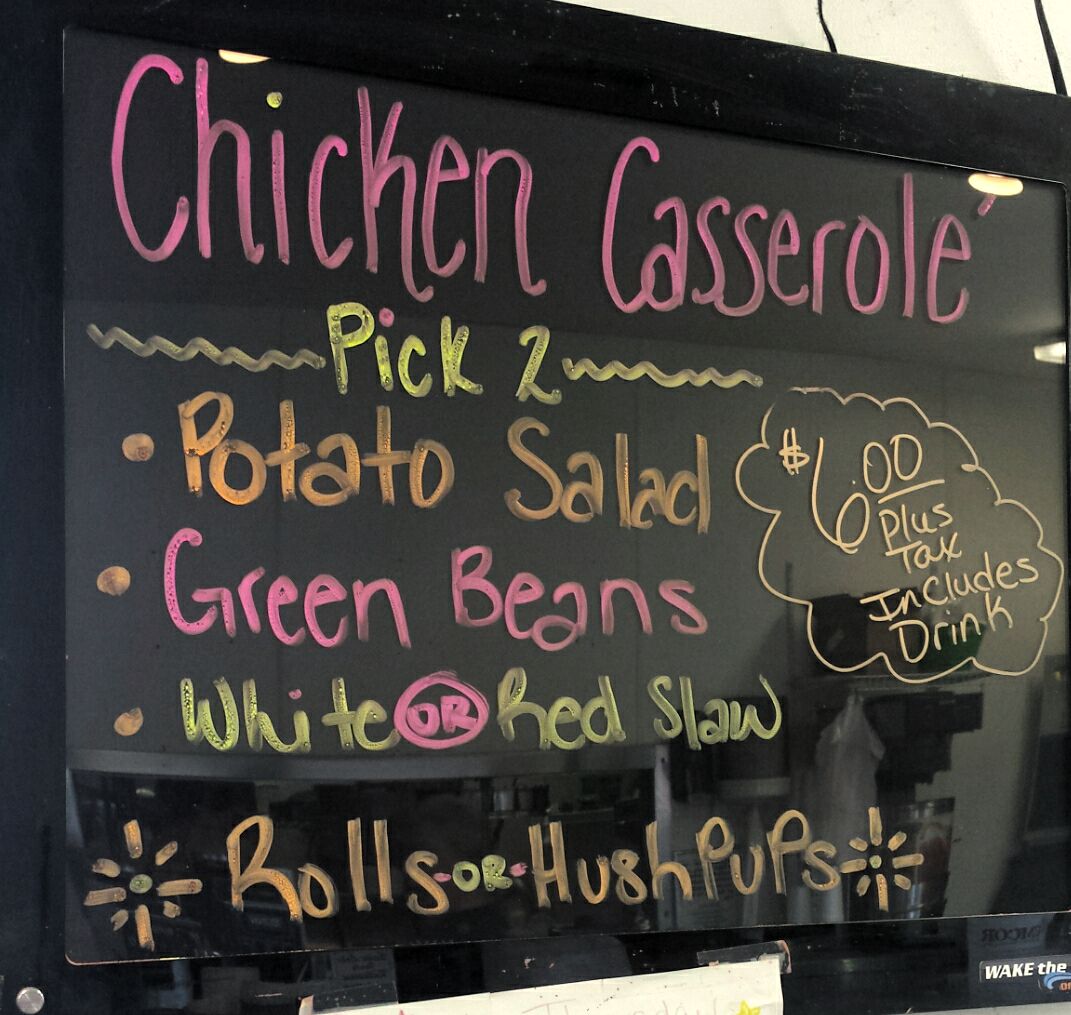 Chicken Casserolé
Pick 2
• Potato Salad
• Green Beans
• White OR Red Slaw
$6.00
Plus
Tax
Includes
Drink
Rolls -OR- HushPuPs
WAKE the